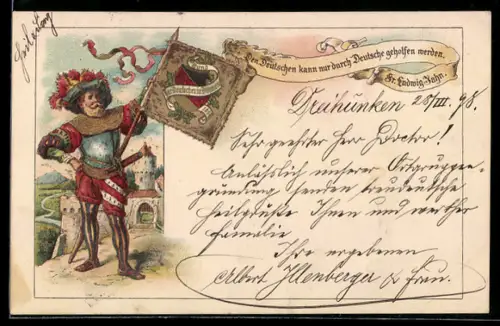 Den Deutschen kann nur durch Deutsche geholfen werden.
Fr. Ludwig Jahn.
Bund
Dreihunken 28/III. 98.
Sehr geehrter Herr Doctor!
Anläßlich unserer Ortsgruppen-
gründung senden treudeutsche
Heilgrüße Ihnen und werther
Familie
Ihre ergebenen
Albert Illenberger & Frau.